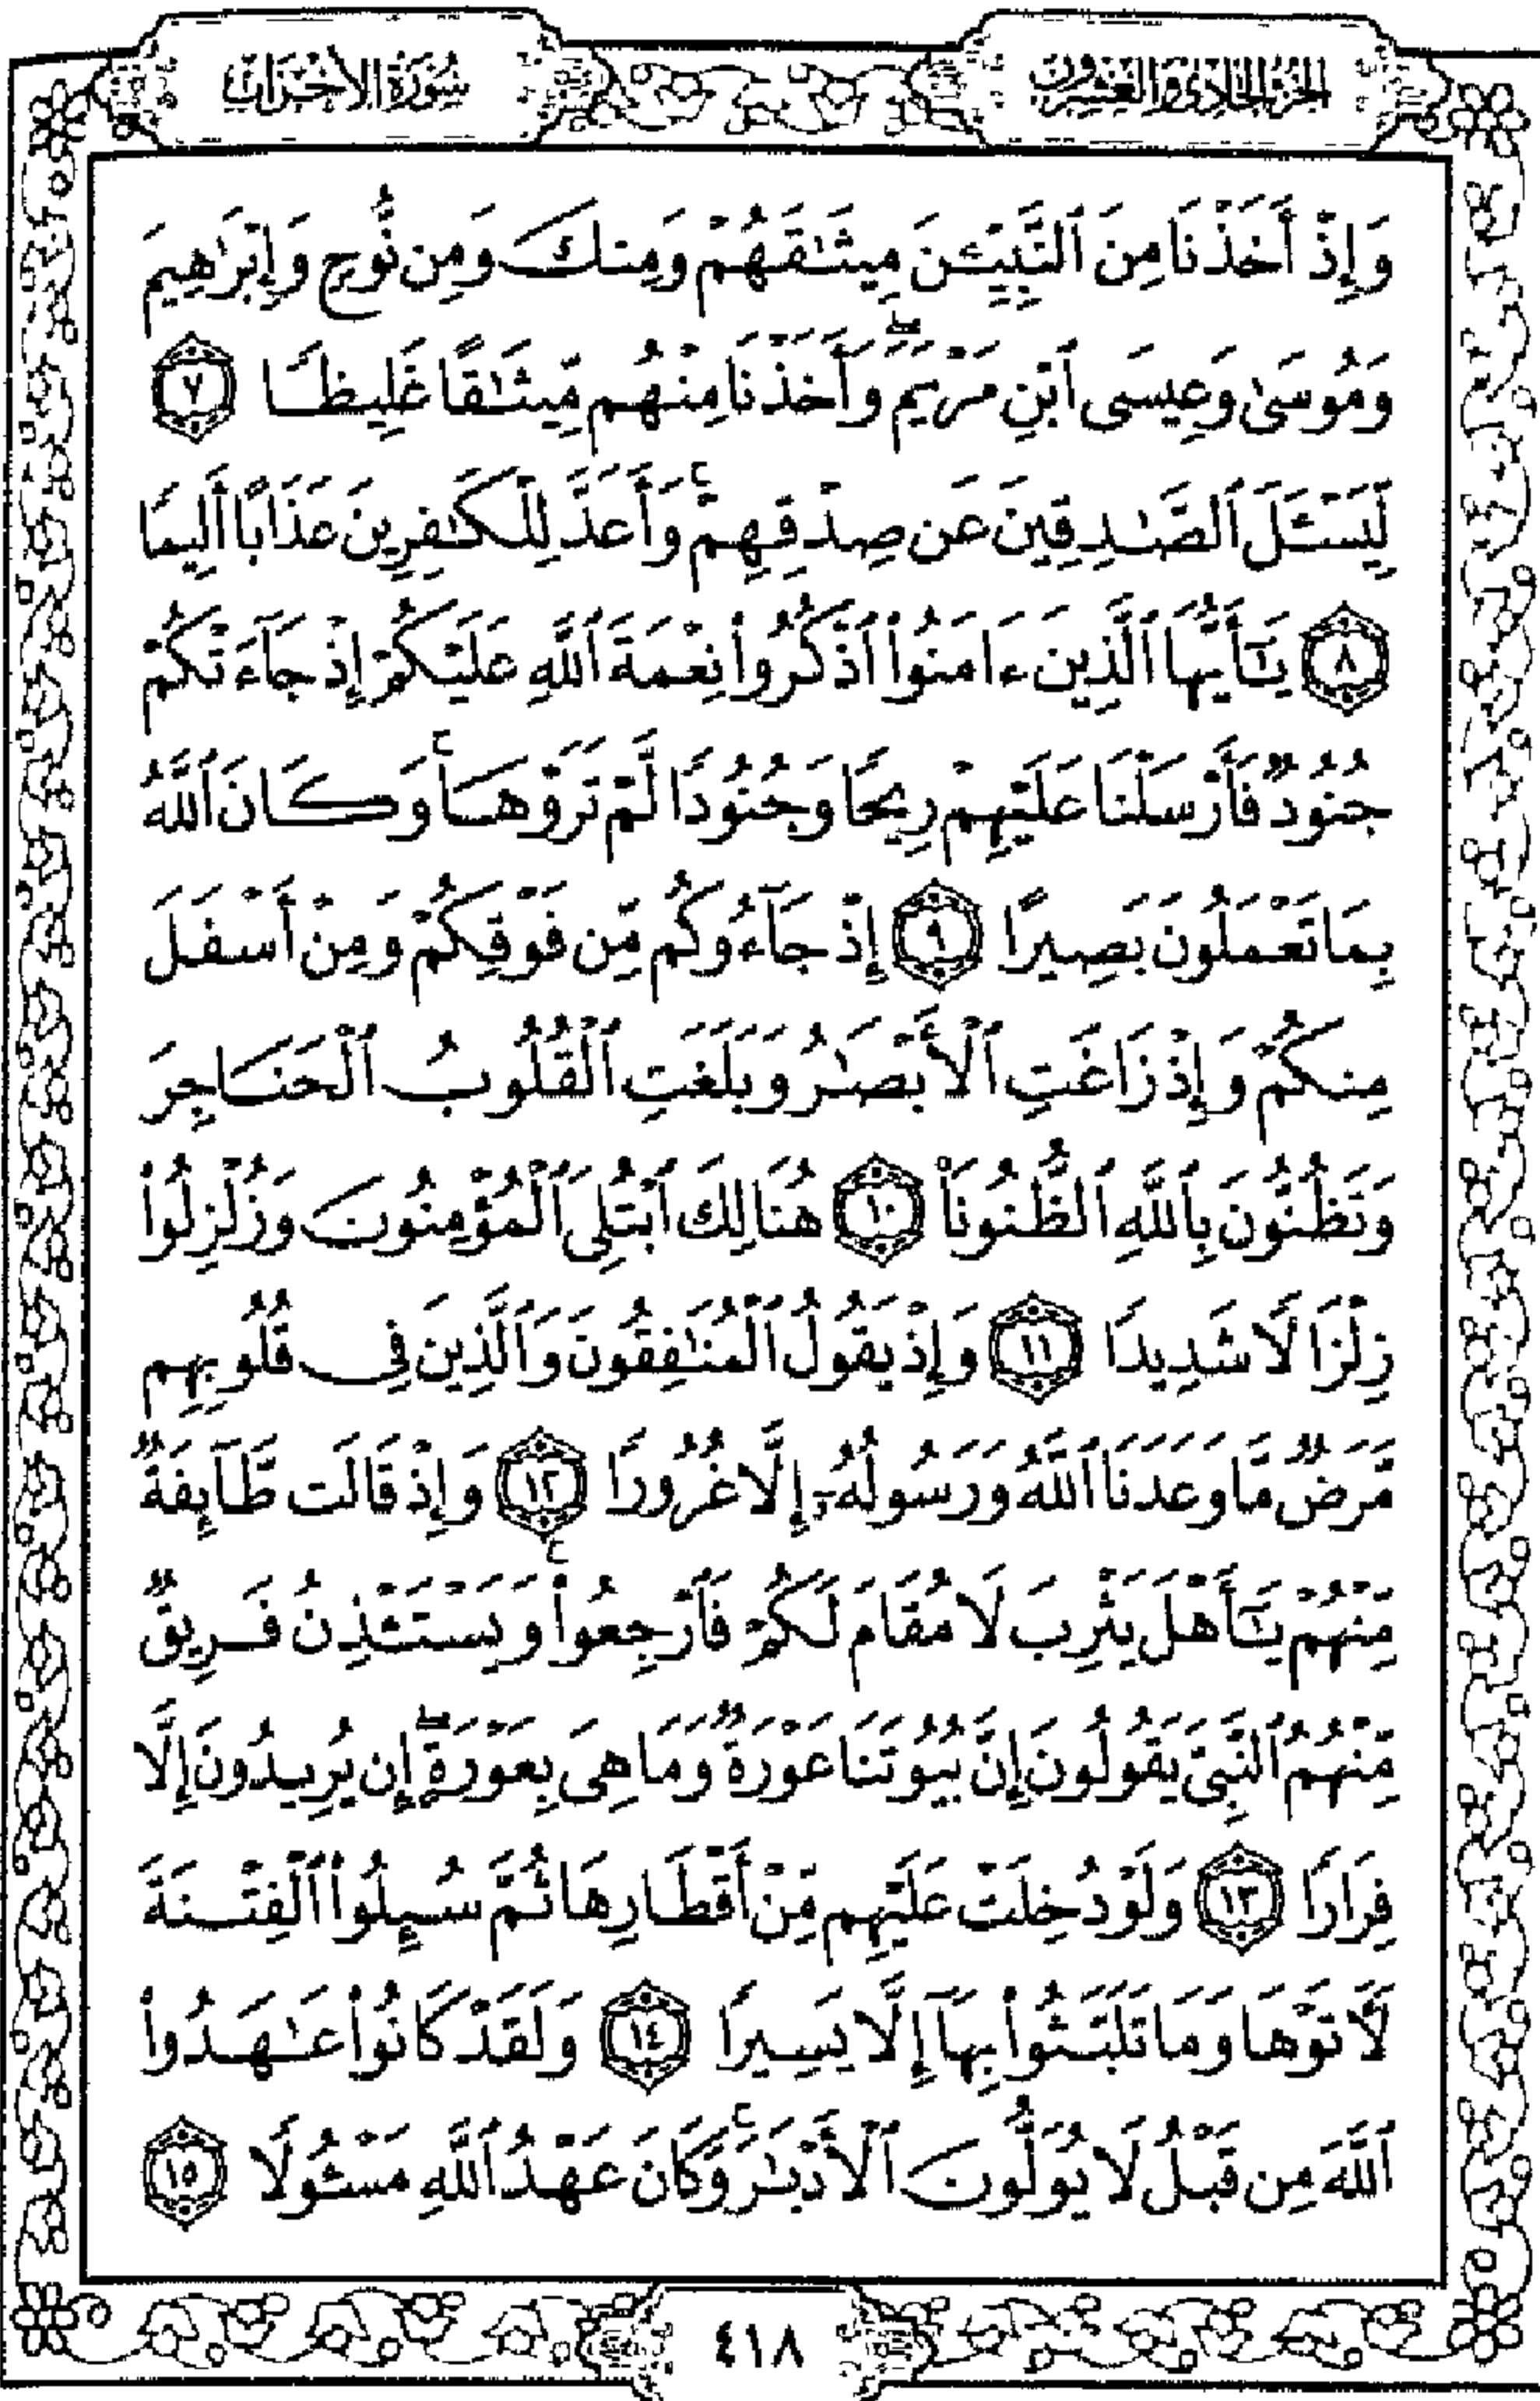 الجزء الحادي والعشرون
سورة الأحزاب
وَإِذْ أَخَذْنَا مِنَ ٱلنَّبِيِّـۧنَ مِيثَـٰقَهُمْ وَمِنكَ وَمِن نُّوحٍ وَإِبْرَٰهِيمَ
وَمُوسَىٰ وَعِيسَى ٱبْنِ مَرْيَمَ ۖ وَأَخَذْنَا مِنْهُم مِّيثَـٰقًا غَلِيظًا ٧
لِّيَسْـَٔلَ ٱلصَّـٰدِقِينَ عَن صِدْقِهِمْ ۚ وَأَعَدَّ لِلْكَـٰفِرِينَ عَذَابًا أَلِيمًا
٨ يَـٰٓأَيُّهَا ٱلَّذِينَ ءَامَنُوا۟ ٱذْكُرُوا۟ نِعْمَةَ ٱللَّهِ عَلَيْكُمْ إِذْ جَآءَتْكُمْ
جُنُودٌ فَأَرْسَلْنَا عَلَيْهِمْ رِيحًا وَجُنُودًا لَّمْ تَرَوْهَا ۚ وَكَانَ ٱللَّهُ
بِمَا تَعْمَلُونَ بَصِيرًا ٩ إِذْ جَآءُوكُم مِّن فَوْقِكُمْ وَمِنْ أَسْفَلَ
مِنكُمْ وَإِذْ زَاغَتِ ٱلْأَبْصَـٰرُ وَبَلَغَتِ ٱلْقُلُوبُ ٱلْحَنَاجِرَ
وَتَظُنُّونَ بِٱللَّهِ ٱلظُّنُونَا۠ ١٠ هُنَالِكَ ٱبْتُلِىَ ٱلْمُؤْمِنُونَ وَزُلْزِلُوا۟
زِلْزَالًا شَدِيدًا ١١ وَإِذْ يَقُولُ ٱلْمُنَـٰفِقُونَ وَٱلَّذِينَ فِى قُلُوبِهِم
مَّرَضٌ مَّا وَعَدَنَا ٱللَّهُ وَرَسُولُهُۥٓ إِلَّا غُرُورًا ١٢ وَإِذْ قَالَت طَّآئِفَةٌ
مِّنْهُمْ يَـٰٓأَهْلَ يَثْرِبَ لَا مُقَامَ لَكُمْ فَٱرْجِعُوا۟ ۚ وَيَسْتَـْٔذِنُ فَرِيقٌ
مِّنْهُمُ ٱلنَّبِىَّ يَقُولُونَ إِنَّ بُيُوتَنَا عَوْرَةٌ وَمَا هِىَ بِعَوْرَةٍ ۖ إِن يُرِيدُونَ إِلَّا
فِرَارًا ١٣ وَلَوْ دُخِلَتْ عَلَيْهِم مِّنْ أَقْطَارِهَا ثُمَّ سُئِلُوا۟ ٱلْفِتْنَةَ
لَـَٔاتَوْهَا وَمَا تَلَبَّثُوا۟ بِهَآ إِلَّا يَسِيرًا ١٤ وَلَقَدْ كَانُوا۟ عَـٰهَدُوا۟
ٱللَّهَ مِن قَبْلُ لَا يُوَلُّونَ ٱلْأَدْبَـٰرَ ۚ وَكَانَ عَهْدُ ٱللَّهِ مَسْـُٔولًا ١٥
٤١٨